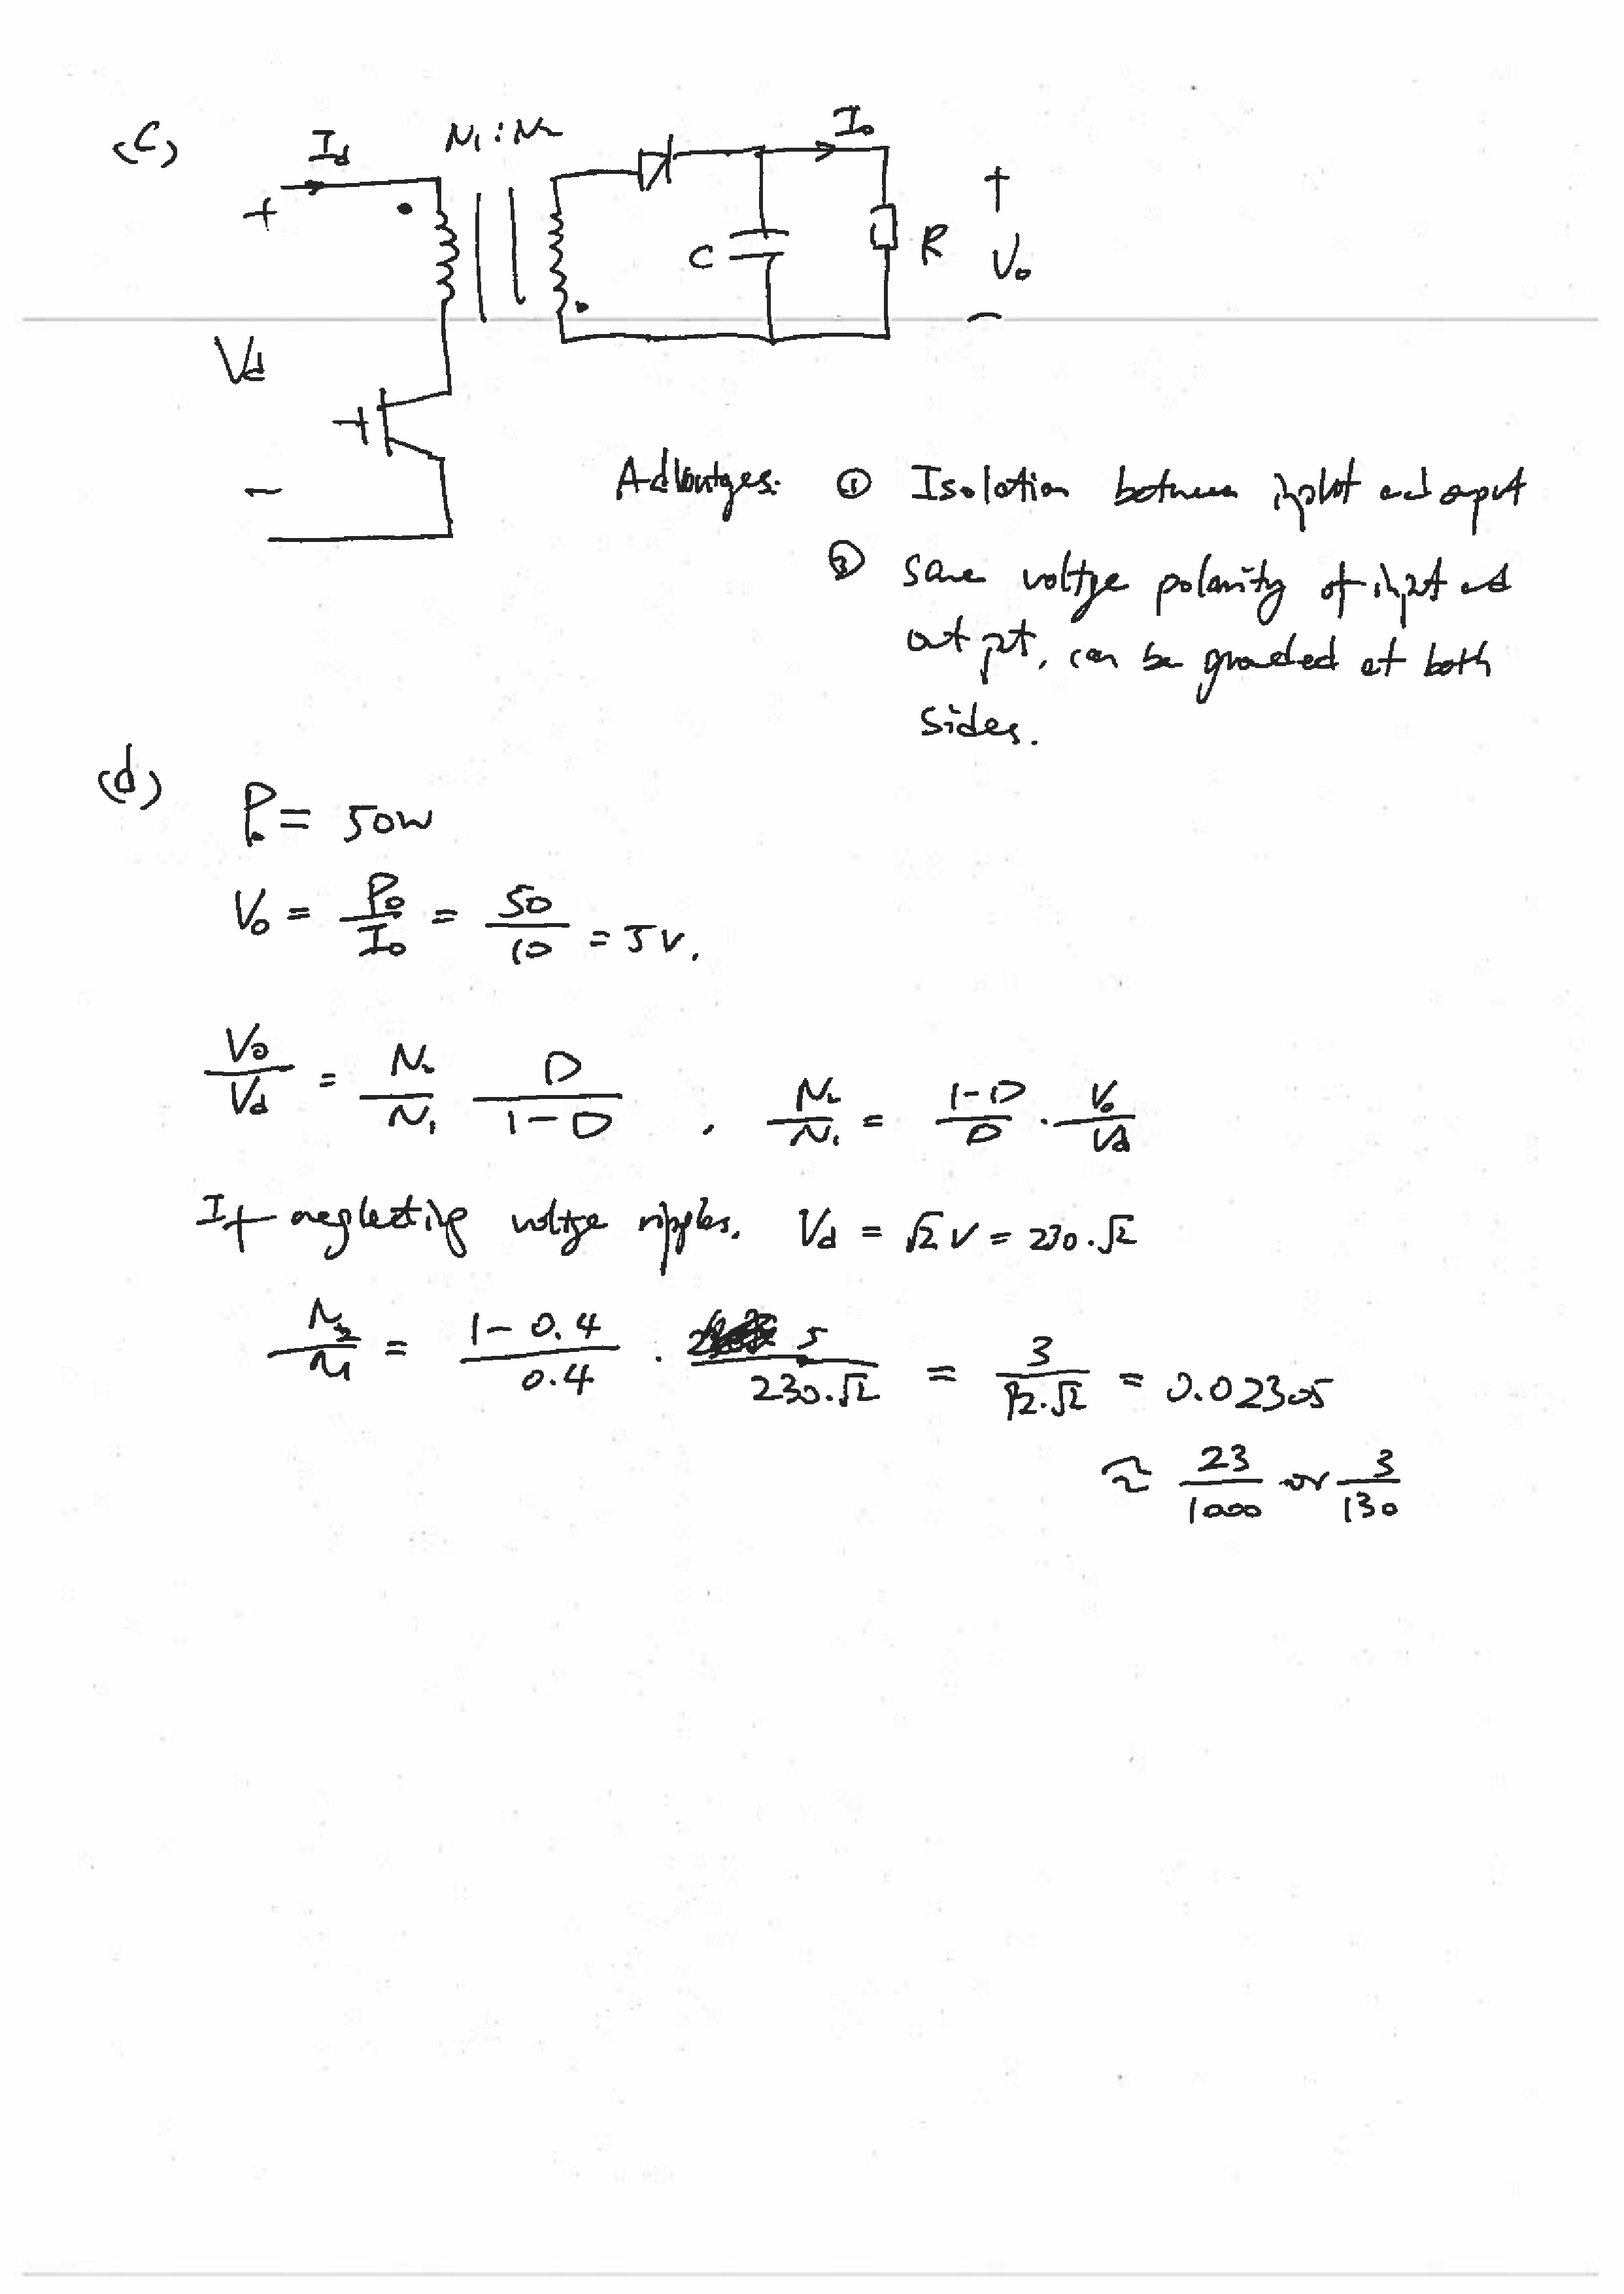 (c)
I_d N₁ : N₂ I₀
+ V_d − C R + V₀ −
Advantges. ① Isolation between input and output
② same voltge polarity of input and
output, can be grounded at both
sides.
(d)
P₀ = 50w
V₀ = P₀/I₀ = 50/10 = 5v.
V₀/V_d = N₂/N₁ D/(1−D) , N₂/N₁ = (1−D)/D · V₀/V_d
If neglecting voltge ripples. V_d = √2 V = 230·√2
N₂/N₁ = (1−0.4)/0.4 · 5/(230·√2) = 3/(92·√2) = 0.02305
≈ 23/1000 or 3/130